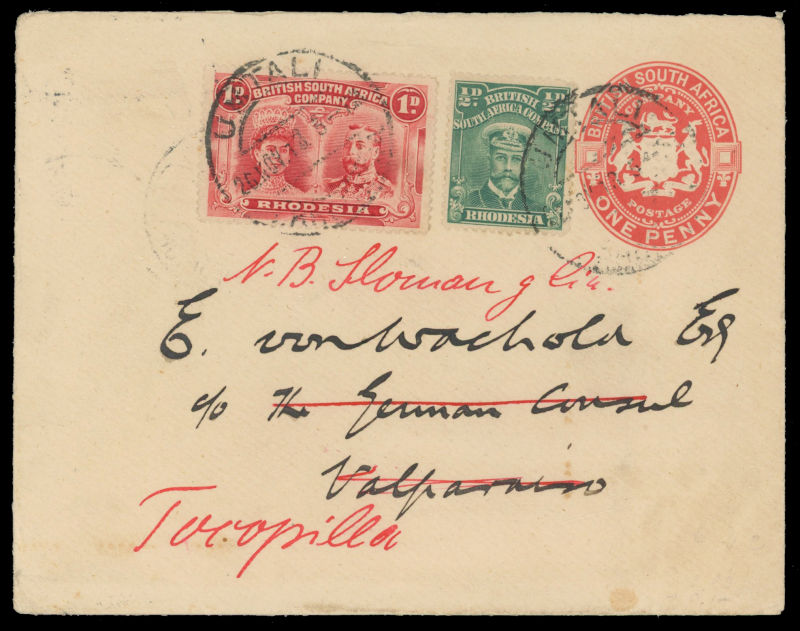 UMTALI
1D BRITISH SOUTH AFRICA COMPANY 1D
RHODESIA
½D BRITISH SOUTH AFRICA COMPANY ½D
RHODESIA
BRITISH SOUTH AFRICA
COMPANY
POSTAGE
ONE PENNY
N. B. Sloman y Cia.
E. von Wachold Esq
c/o the German Consul
Valparaiso
Tocopilla